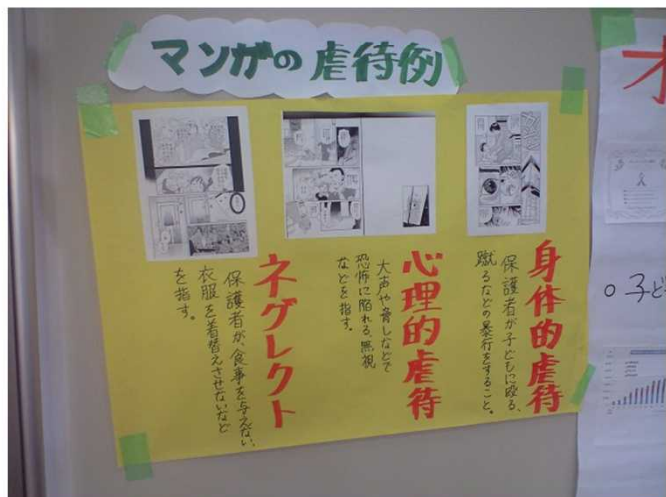 マンガの虐待例
身体的虐待
保護者が子どもに殴る、
蹴るなどの暴行をすること。
心理的虐待
大声や脅しなどで
恐怖に陥れる、無視
などを指す。
ネグレクト
保護者が、食事を与えない、
衣服を着替えさせないなど
を指す。
子ど